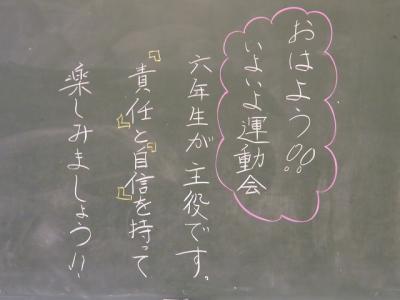 おはよう!!
いよいよ運動会
六年生が主役です。
『責任』と『自信』を持って
楽しみましょう!!